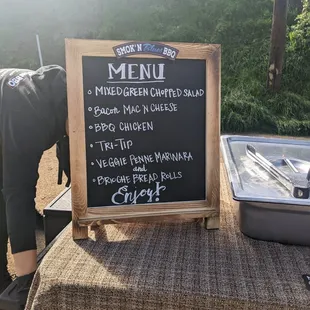 SMOK'N Blue BBQ
MENU
MIXED GREEN CHOPPED SALAD
BACON MAC 'N CHEESE
BBQ CHICKEN
TRI-TIP
VEGGIE PENNE MARINARA
AND
BRIOCHE BREAD ROLLS
Enjoy!